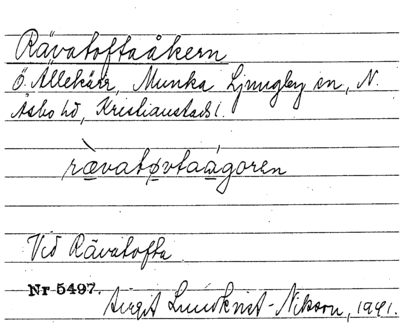 Rävatoftaåkern
Ö. Ällekärr, Munka Ljungby sn, N.
Åsbo hd, Kristianstads l.
rævatovtaågoren
Vid Rävatofta.
Nr 5497.
Birgit Lundkvist-Nilsson, 1941.